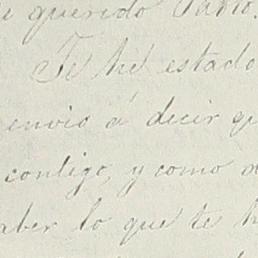 i querido Pablo.
Te hé estado
envio á decir qu
contigo, y como d
aber lo que te h